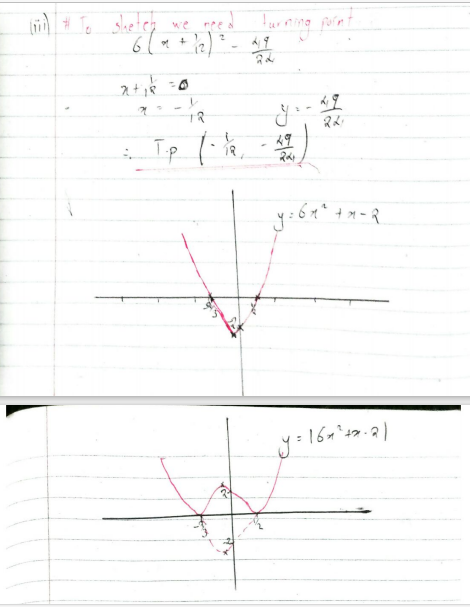 (iii) # To sketch we need turning point
6(x + 1/12)² - 49/24
x + 1/12 = 0
x = -1/12 y = -49/24
∴ T.p (-1/12, -49/24)
y = 6x² + x - 2
-2/3 -2 1/2
y = |6x² + x - 2|
2
-2/3 1/2
-2